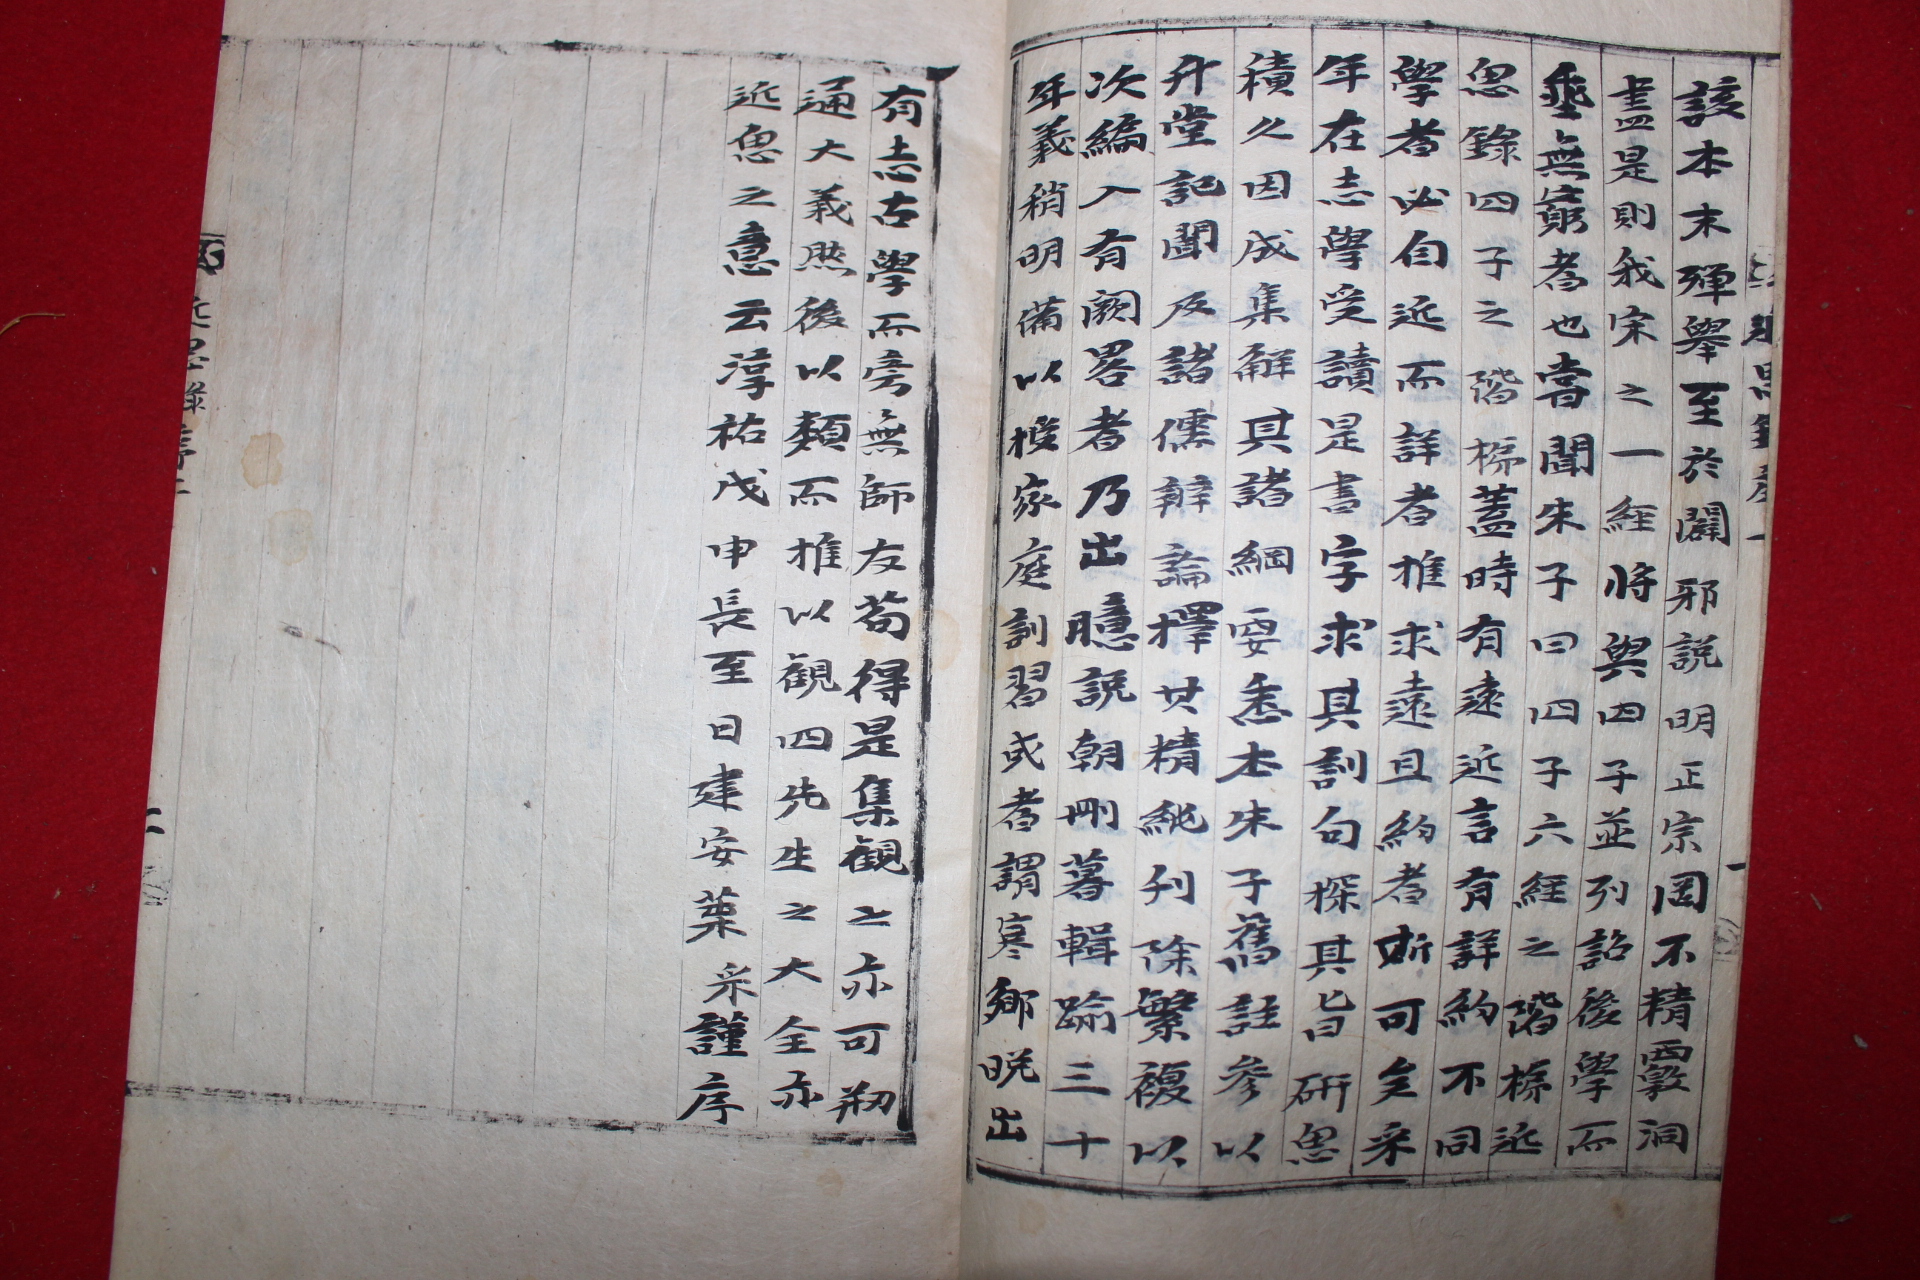 該本末殫舉至於闢邪說明正宗罔不精覈洞
盡是則我宋之一經將與四子並列詔後學而
垂無窮者也嘗聞朱子曰四子六經之階梯近
思錄四子之階梯盖時有遠近言有詳約不同
學者必自近而詳者推求遠且約者斯可矣采
年在志學受讀是書字求其訓句探其旨硏思
積久因成集解其諸綱要悉本朱子舊註參以
升堂記聞及諸儒辯論擇其精純刋除繁複以
次編入有闕畧者乃出臆說朝刪暮輯踰三十
年義稍明備以授家庭訓習或者謂寒鄉晩出
有志古學而旁無師友苟得是集觀之亦可刱
通大義然後以類而推以觀四先生之大全亦
近思之意云淳祐戊申長至日建安葉采謹序
近思錄序二
二